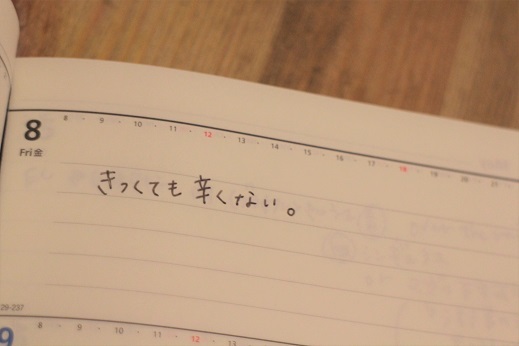 8 8 · 9 · 10 · 11 · 12 · 13 · 14 · 15 · 16 · 17 · 18 · 19 · 20 · 21
Fri 金
きつくても辛くない。
229-237
9 8 · 9 · 10 · 11 · 12 · 13